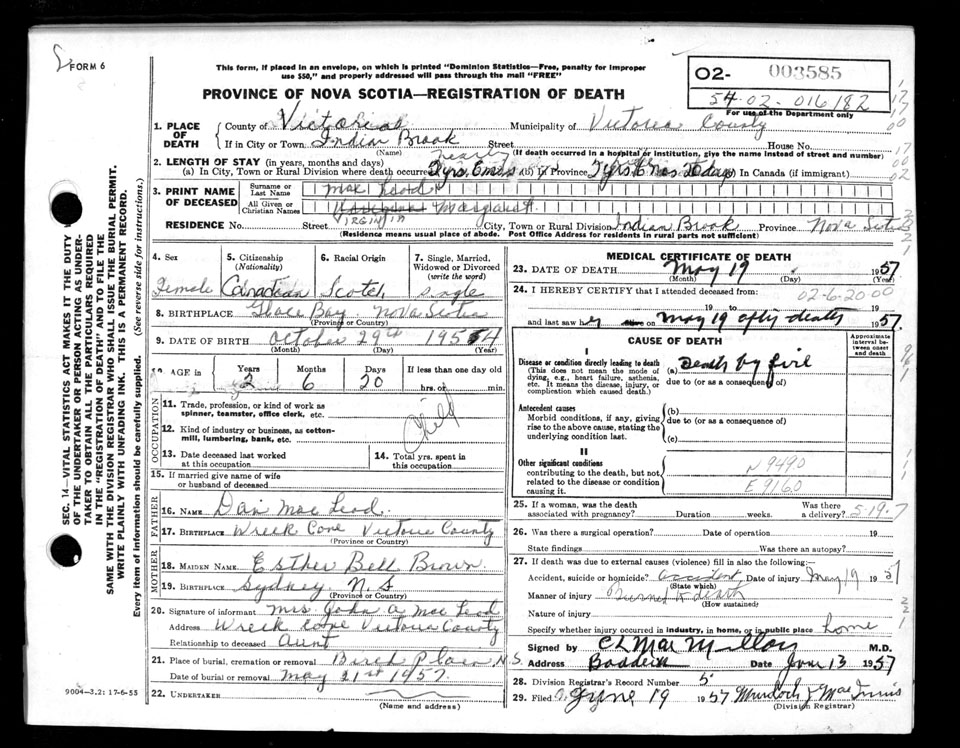 FORM 6
This form, if placed in an envelope, on which is printed "Dominion Statistics—Free, penalty for improper
use $50," and properly addressed will pass through the mail "FREE"
PROVINCE OF NOVA SCOTIA—REGISTRATION OF DEATH
02- 003585
54-02-016182
For use of the Department only
1. PLACE OF DEATH
County of Victoria Municipality of Victoria County
If in City or Town Indian Brook Street House No.
(Name) (If death occurred in a hospital or institution, give the name instead of street and number)
2. LENGTH OF STAY (in years, months and days)
(a) In City, Town or Rural Division where death occurred (b) In Province (c) In Canada (if immigrant)
3. PRINT NAME OF DECEASED
Surname or Last Name Mac Leod
All Given or Christian Names Margaret
VIRGINIA
RESIDENCE No. Street City, Town or Rural Division Indian Brook Province Nova Scotia
(Residence means usual place of abode. Post Office Address for residents in rural parts not sufficient)
4. Sex 5. Citizenship (Nationality) 6. Racial Origin 7. Single, Married, Widowed or Divorced (write the word)
Female Canadian Scotch single
8. BIRTHPLACE Glace Bay Nova Scotia
(Province or Country)
9. DATE OF BIRTH October 29th 1954
(Month) (Day) (Year)
10. AGE in Years Months Days If less than one day
2 6 20 hrs. or min.
OCCUPATION
11. Trade, profession, or kind of work as
spinner, teamster, office clerk, etc.
Child
12. Kind of industry or business, as cotton-
mill, lumbering, bank, etc.
13. Date deceased last worked
at this occupation
14. Total yrs. spent in
this occupation
15. If married give name of wife
or husband of deceased
FATHER
16. NAME Dan Mac Leod
17. BIRTHPLACE Wreck Cove Victoria County
(Province or Country)
MOTHER
18. MAIDEN NAME Esther Bell Brown
19. BIRTHPLACE Sydney N.S
(Province or Country)
20. Signature of informant Mrs. John A Mac Leod
Address Wreck Cove Victoria County
Relationship to deceased Aunt
21. Place of burial, cremation or removal Birch Plain N.S.
Date of burial or removal May 21st 1957
22. UNDERTAKER
(Name and address)
9004-3.2: 17-6-55
MEDICAL CERTIFICATE OF DEATH
23. DATE OF DEATH May 19 1957
(Month) (Day) (Year)
24. I HEREBY CERTIFY that I attended deceased from:
02-6-20 00
19 to 19
and last saw her on May 19 after death 1957.
CAUSE OF DEATH
Approximate interval between onset and death
I
Disease or condition directly leading to death
(This does not mean the mode of
dying, e.g., heart failure, asthenia,
etc. It means the disease, injury, or
complication which caused death.)
(a) Death by fire
due to (or as a consequence of)
Antecedent causes
Morbid conditions, if any, giving
rise to the above cause, stating the
underlying condition last.
(b)
due to (or as a consequence of)
(c)
II
Other significant conditions
contributing to the death, but not
related to the disease or condition
causing it.
N 9490
E9160
25. If a woman, was the death
associated with pregnancy? Duration weeks. Was there a delivery?
5-19-7
26. Was there a surgical operation? Date of operation 19
State findings Was there an autopsy?
27. If death was due to external causes (violence) fill in also the following:
Accident, suicide or homicide? accident Date of injury May 19 1957
(State which)
Manner of injury Burned to death
(How sustained)
Nature of injury
Specify whether injury occurred in industry, in home, or in public place home
Signed by C L MacMillan M.D.
Address Baddeck Date June 13 1957
28. Division Registrar's Record Number 5
29. Filed June 19 1957 Murdoch J MacInnis
(Division Registrar)
SEC. 14—VITAL STATISTICS ACT MAKES IT THE DUTY
OF THE UNDERTAKER OR PERSON ACTING AS UNDER-
TAKER TO OBTAIN ALL THE PARTICULARS REQUIRED
IN THE "REGISTRATION OF DEATH" AND TO FILE THE
SAME WITH THE DIVISION REGISTRAR WHO SHALL ISSUE THE BURIAL PERMIT.
WRITE PLAINLY WITH UNFADING INK. THIS IS A PERMANENT RECORD.
Every item of information should be carefully supplied. (See reverse side for instructions.)